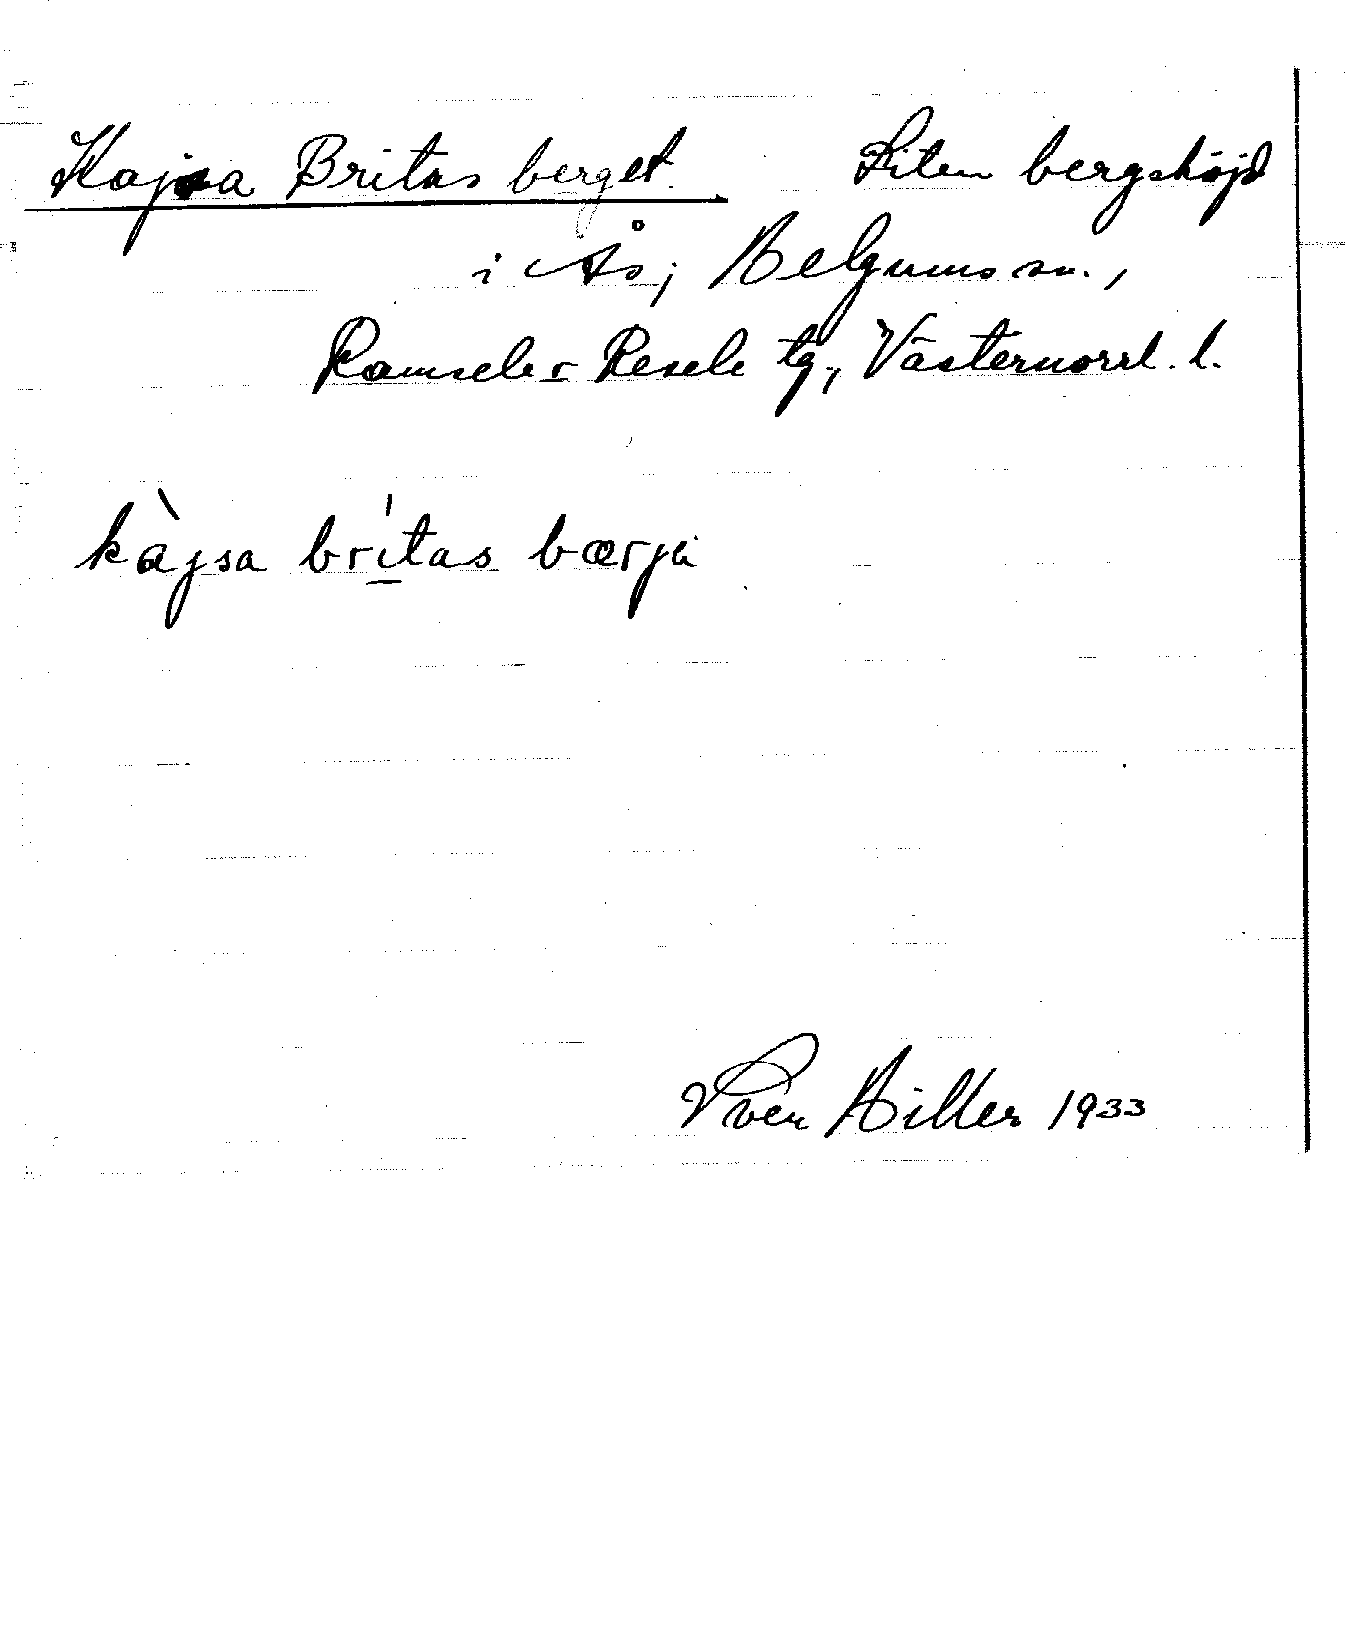 Kajsa Britas berget. Liten bergshöjd
i Ås, Helgums sn.,
Ramsele o Resele tg., Västernorrl. l.
kàjsa brítas bærja
Sven Hiller 1933